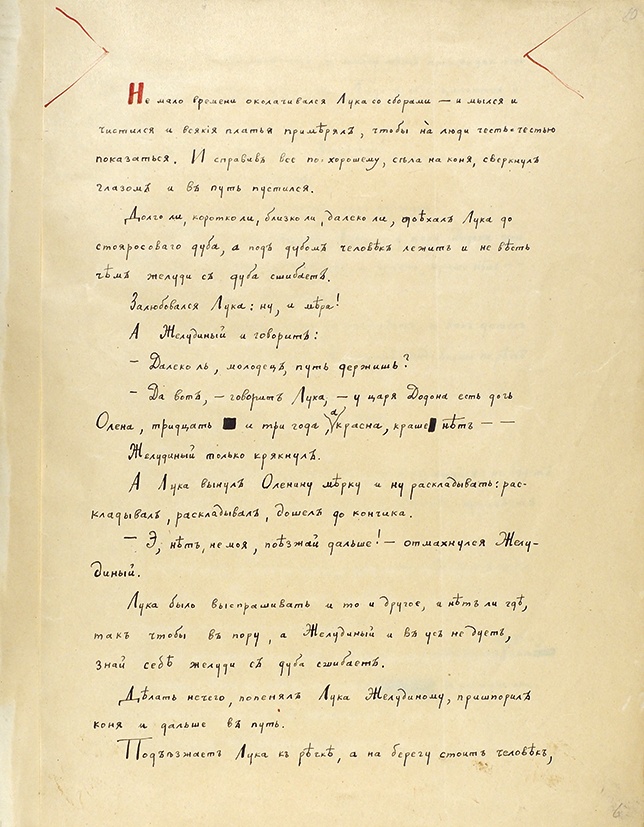 Не мало времени околачивался Лука со сборами — и мылся и
чистился и всякія платья примѣрялъ, чтобы на люди честь-честью
показаться. И справивъ все по-хорошему, сѣлъ на коня, сверкнулъ
глазомъ и въ путь пустился.
Долго ли, коротко ли, близко ли, далеко ли, доѣхалъ Лука до
стояросоваго дуба, а подъ дубомъ человѣкъ лежитъ и не вѣсть
чѣмъ желуди съ дуба сшибаетъ.
Залюбовался Лука: ну, и мѣра!
А Желудиный и говоритъ:
— Далеко ль, молодецъ, путь держишь?
— Да вотъ, — говоритъ Лука, — у царя Додона есть дочь
Олена, тридцать и три года, а красна, краше нѣтъ — —
Желудиный только крякнулъ.
А Лука вынулъ Оленину мѣрку и ну раскладывать: рас-
кладывалъ, раскладывалъ, дошелъ до кончика.
— Э, нѣтъ, не моя, поѣзжай дальше! — отмахнулся Желу-
диный.
Лука было выспрашивать и то и другое, а нѣтъ ли гдѣ,
такъ чтобы въ пору, а Желудиный и въ усъ не дуетъ,
знай себѣ желуди съ дуба сшибаетъ.
Дѣлать нечего, попенялъ Лука Желудиному, пришпорилъ
коня и дальше въ путь.
Подъѣзжаетъ Лука къ рѣчкѣ, а на берегу стоитъ человѣкъ,